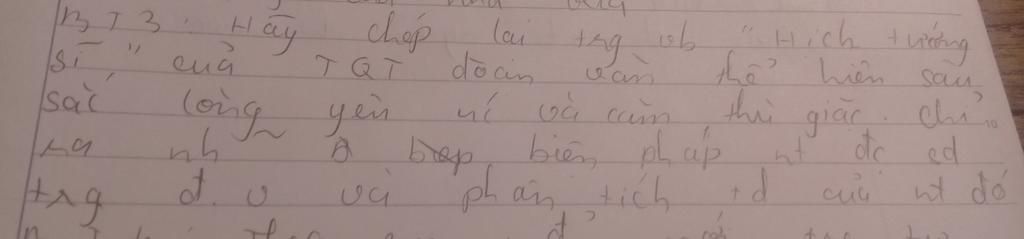 BT3: Hãy chép lại trg vb "Hịch tướng
sĩ" của TQT đoạn văn thể hiện sâu
sắc lòng yêu nc và căm thù giặc. Chỉ
ra nh biện pháp nt đc sd
trg đ.v và phân tích td của nt đó